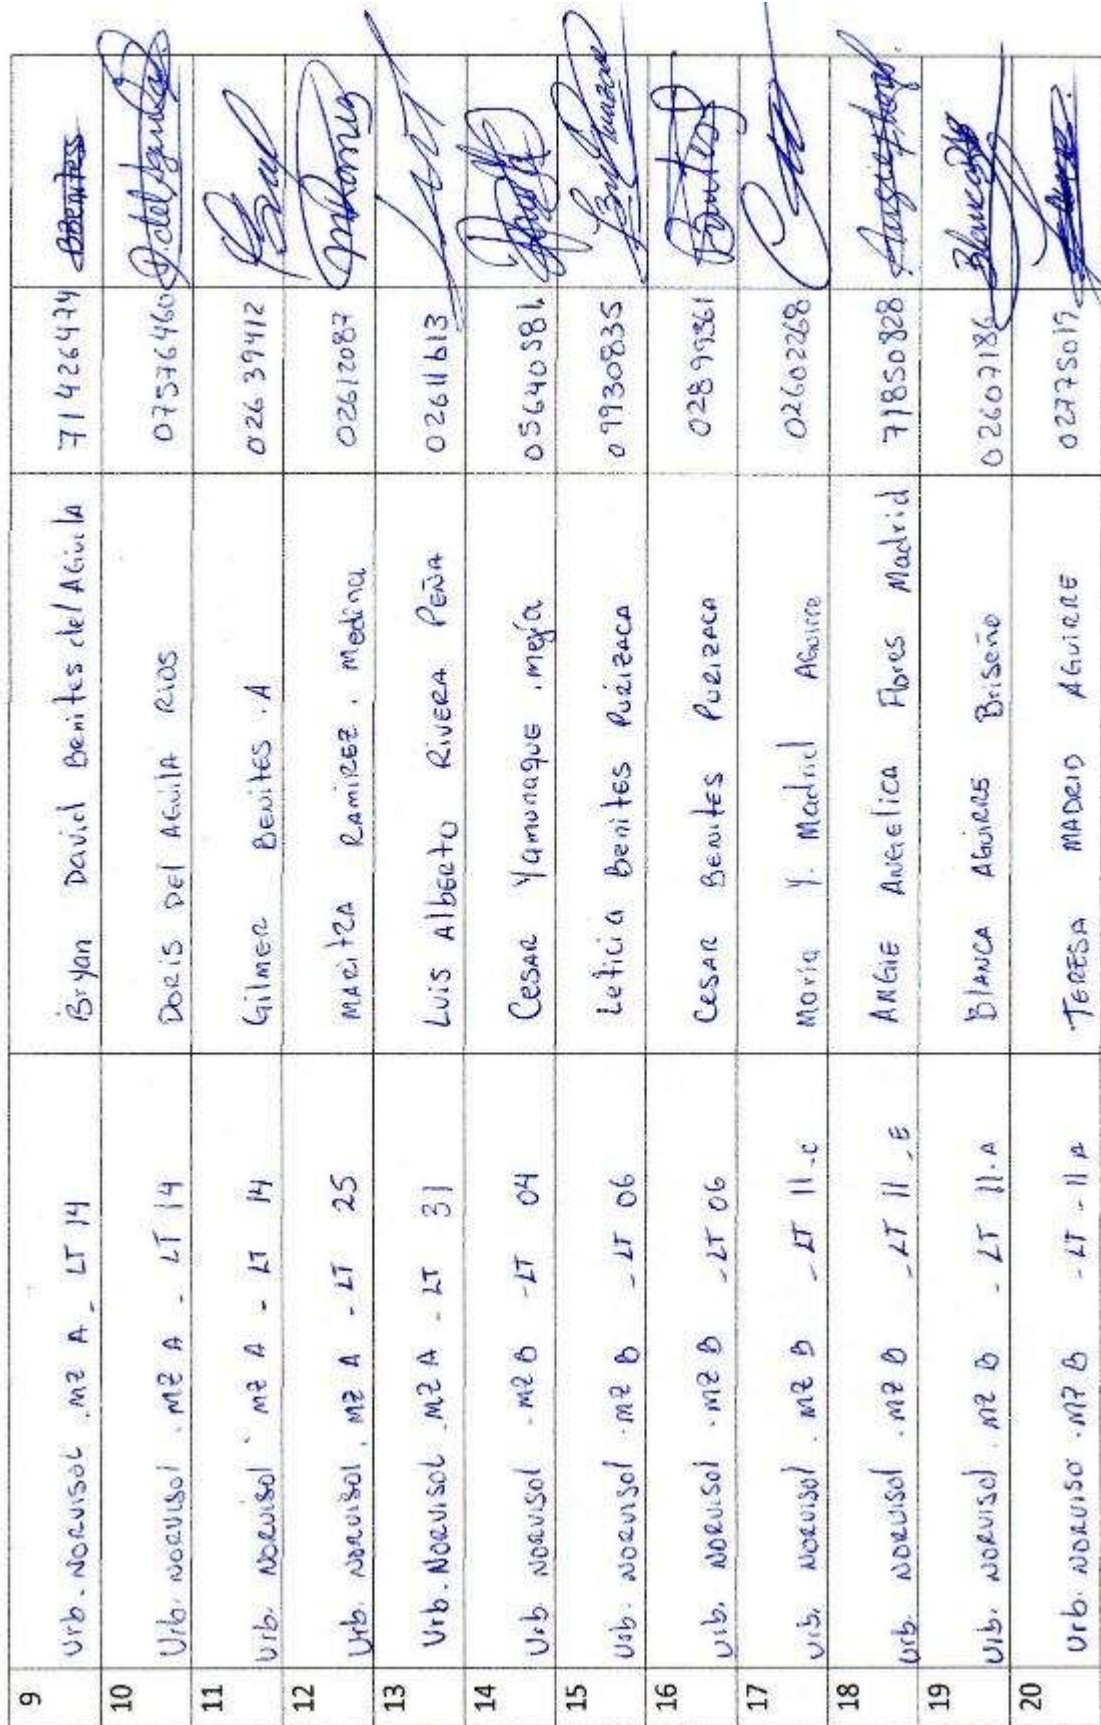 9 Urb. NORVISOL . MZ A - LT 14 Bryan David Benites del AGuilA 71426474 BBenites
10 Urb. NORVISOl . MZ A - LT 14 DORIS Del AGuilA RIOS 07576460
11 Urb. NORVISOl MZ A - LT 14 GilMER BENites . A 02639412
12 Urb. NORVISOl . MZ A - LT 25 MARitZA RAMIREZ . Medina 02612087
13 Urb. NORVISOL . MZ A - LT 31 LUIS AlbERtO RIVERA PEÑA 02611613
14 Urb. NORVISOl . MZ B - LT 04 CESAR YAMUNAQUE . mejía 05640381
15 Urb. NORVISOl . MZ B - LT 06 Leticia Benites PURIZACA 09930835
16 Urb. NORVISOl . MZ B - LT 06 CESAR BENITES PURIZACA 02899361
17 Urb. NORVISOl . MZ B - LT 11-C María Y. Madrid AGuirre 02602268
18 Urb. NORVISOl . MZ B - LT 11-E ANGIE ANGElica Flores Madrid 71850828
19 Urb. NORVISOl . MZ B - LT 11-A BlANCA AGUIRRE Briseño 02607186
20 Urb. NORVISO . MZ B - LT - 11 A TERESA MADRID AGUIRRE 02775019